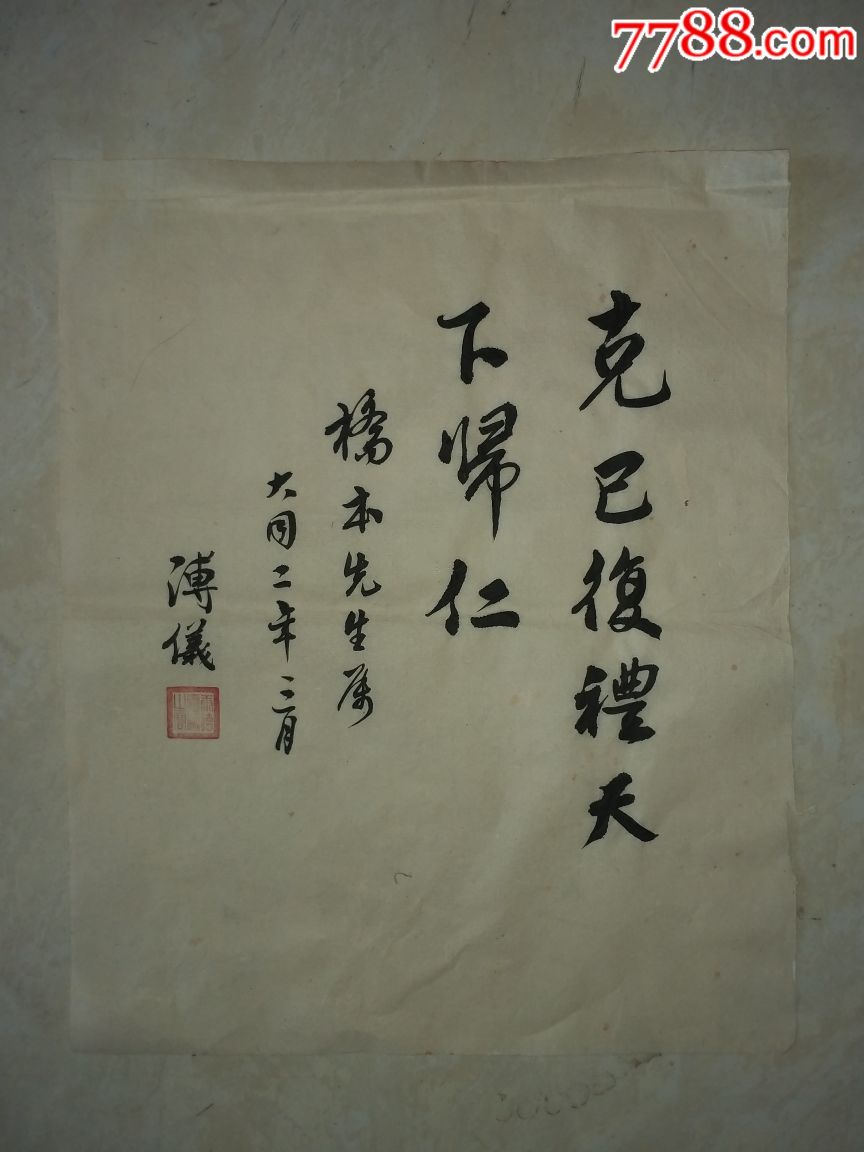 7788.com
克己復禮天
下歸仁
橋本先生屬
大同二年三月
溥儀